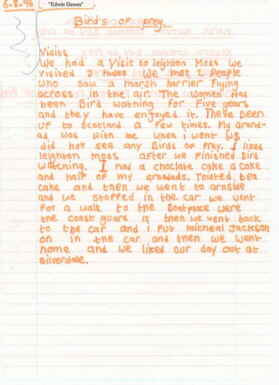 5.8.96 "Edwin Dawes"
Birds of prey
Visits
We had a Visit to leighton Moss We
visited 2 hides We met 2 People
who saw a marsh harrier Flying
across in the air. The women has
been Bird watching for Five years
and they have enjoyed it. Thave been
up to scotland a few times. My Grand-
ad was with me when i went we
did not see any Birds of Prey. I liked
leighton moss after we Finished Bird
watching. I had a choclate cake a coke
and half of my grandads. Toasted, tea
cake and then we went to arnside
and we stopped in the car we went
For a walk to the Boatplace were
the coast guard is then we went back
to the car and i Put micheal Jackson
on in the car and then we went
home and we liked our day out at
Silverdale.